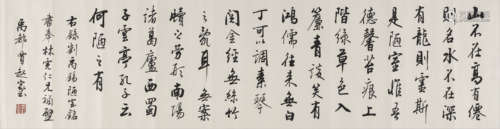 山不在高有僊
則名水不在深
有龍則靈斯
是陋室惟吾
德馨苔痕上
階綠草色入
簾青談笑有
鴻儒往來無白
丁可以調素琴
閱金經無絲竹
之亂耳無案
牘之勞形南陽
諸葛廬西蜀
子雲亭孔子云
何陋之有
右錄劉禹錫陋室銘
仁兄